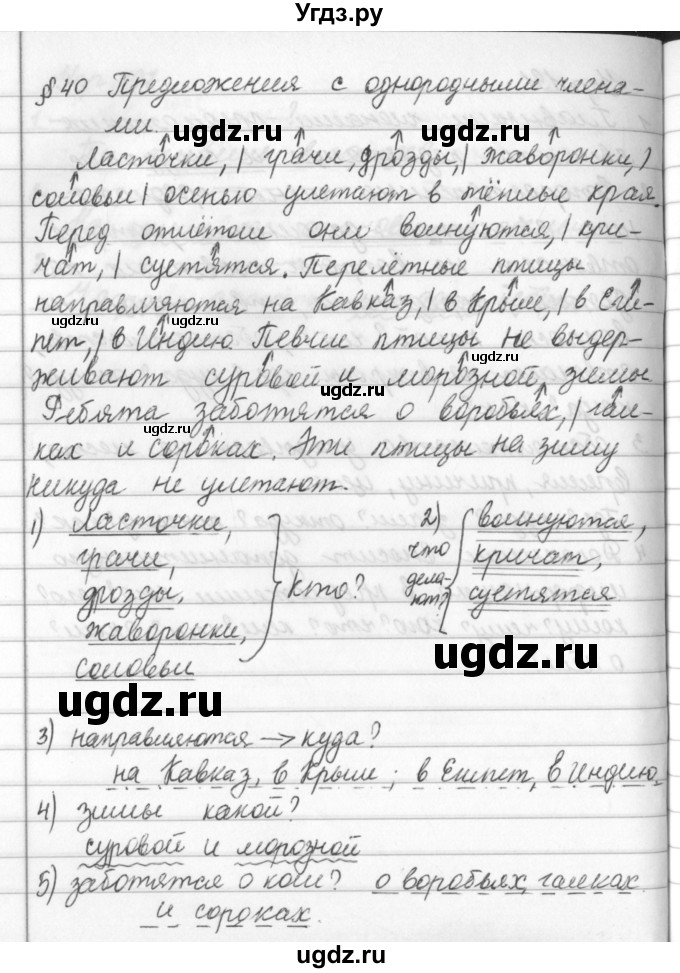 Угдз.ру
§ 40 Предложения с однородными члена-
ми.
ugdz.ru ugdz.ru ugdz.ru
Ласточки, | грачи, дрозды, | жаворонки, |
соловьи | осенью улетают в тёплые края.
Перед отлётом они волнуются, | кри-
чат, | суетятся. Перелётные птицы
направляются на Кавказ, | в Крым, | в Еги-
ugdz.ru ugdz.ru
пет, | в Индию. Певчие птицы не выдер-
ugdz.ru
живают суровой и морозной зимы.
Ребята заботятся о воробьях, | гал-
ugdz.ru ugdz.ru
ках и сороках. Эти птицы на зиму
никуда не улетают.
1) ласточки, 2) волнуются,
ugdz.ru ugdz.ru
грачи, что кричат,
дрозды, Кто? дела- суетятся
ют?
жаворонки,
ugdz.ru
соловьи
ugdz.ru
3) направляются → куда?
на Кавказ, в Крым, в Египет, в Индию.
4) зимы какой?
суровой и морозной
5) заботятся о ком? о воробьях, галках
и сороках.
ugdz.ru
ugdz.ru